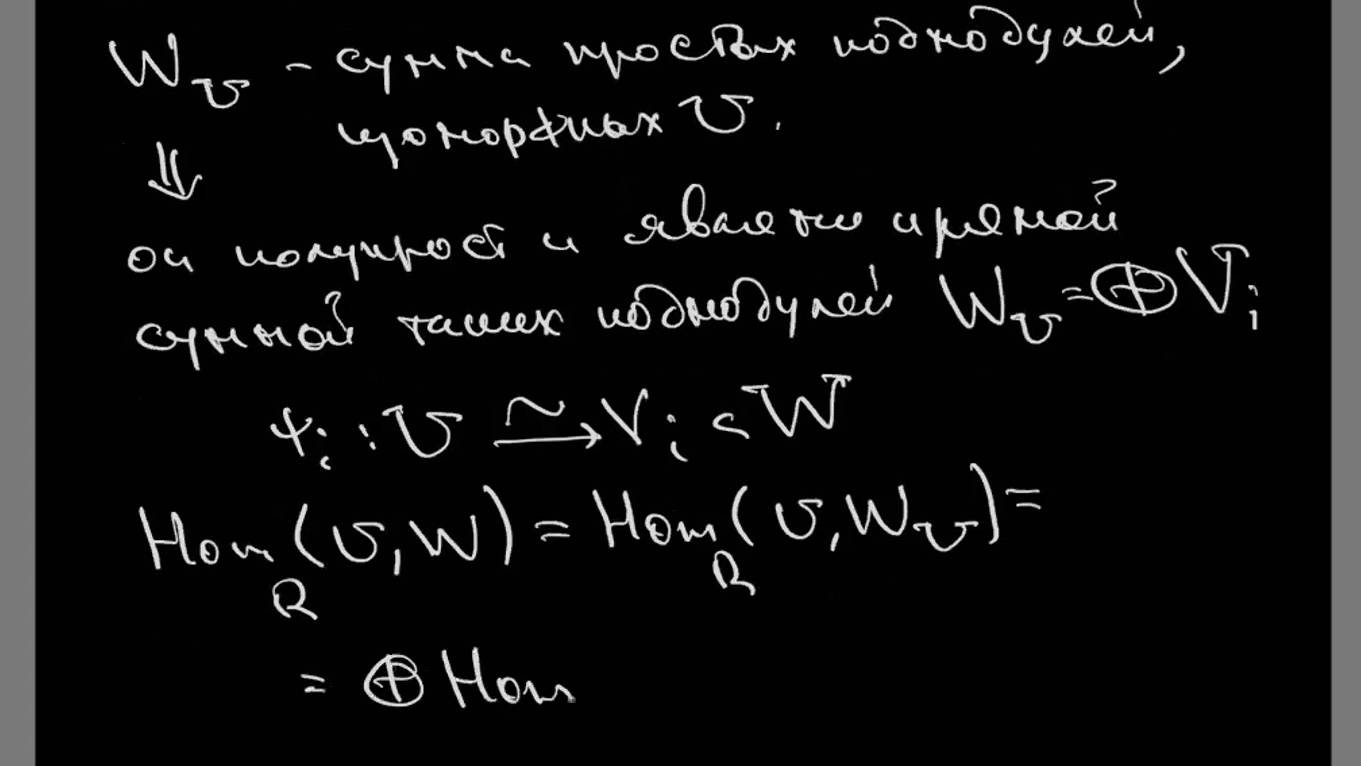 W_U - сумма простых подмодулей,
изоморфных U.
⇓
он полупрост и является прямой
суммой таких подмодулей W_U = ⊕ V_i
ψ_i : U ⥲ V_i ⊂ W
Hom_R (U, W) = Hom_R (U, W_U) =
= ⊕ Hom